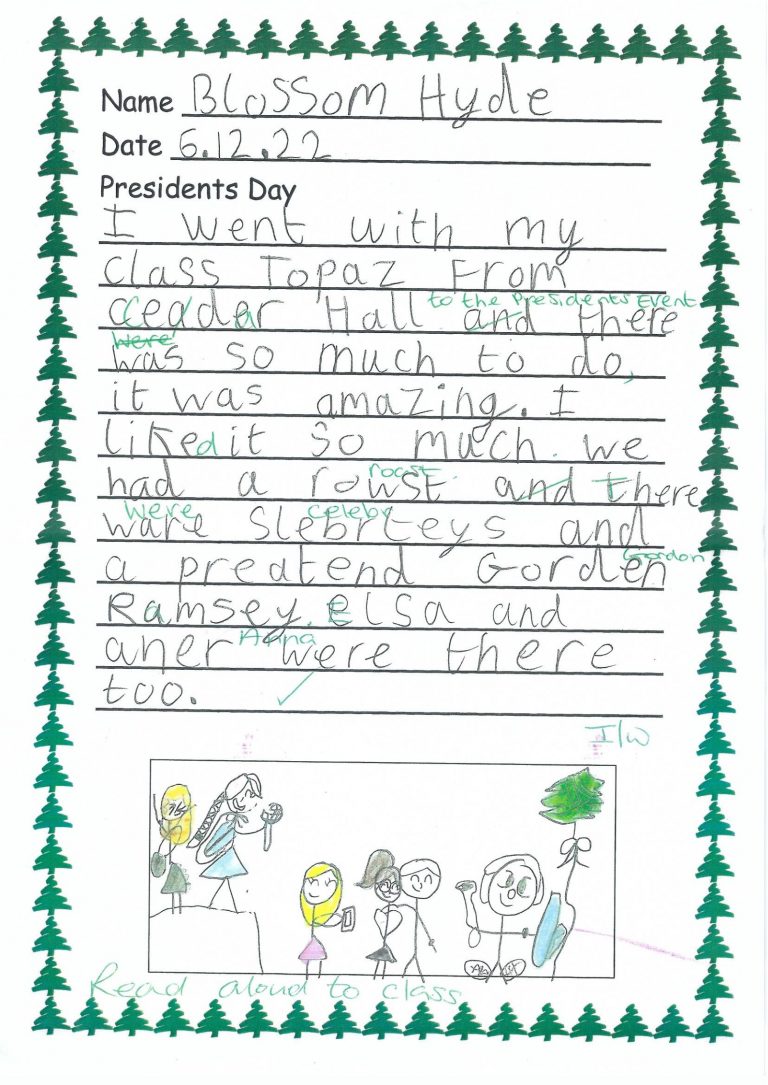 Name Blossom Hyde
Date 6.12.22
Presidents Day
I went with my
class Topaz From
to the Presidents Event
Ceadar Hall and there
were
was so much to do,
it was amazing. I
liked it so much. we
roast
had a rowst. and there
were celebr
ware Slebrteys and
Gordon
a preatend Gorden
Ramsey. Elsa and
Anna
aner were there
too.
I/w
Read aloud to class